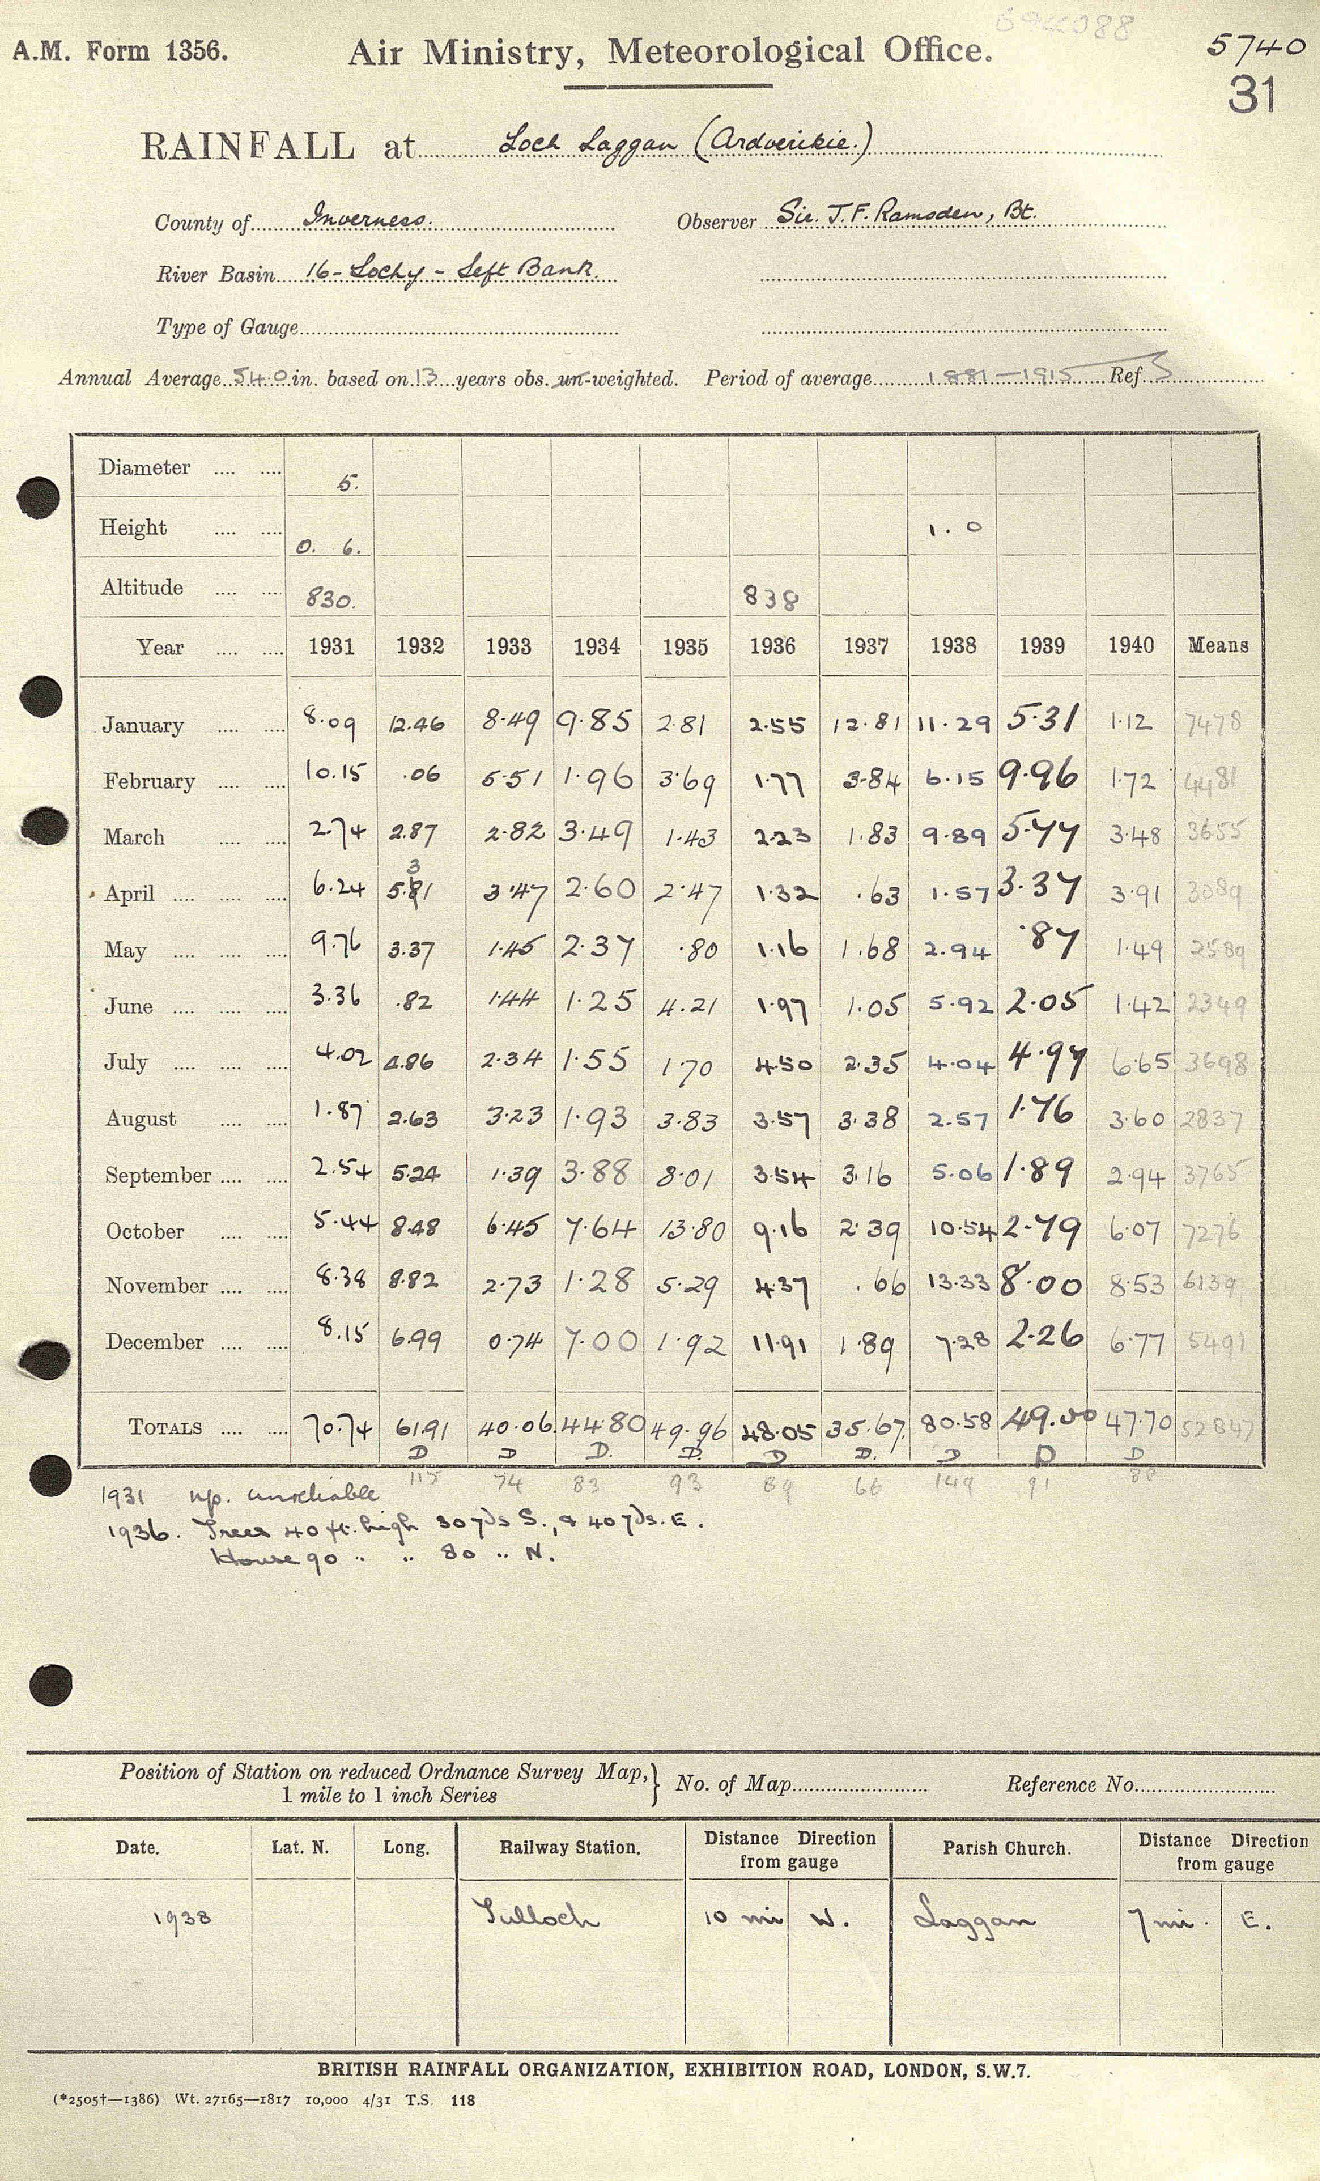 A.M. Form 1356.
Air Ministry, Meteorological Office.
5740
31
RAINFALL at Loch Laggan (Ardverikie.)
County of Inverness. Observer Sir. J.F. Ramsden, Bt.
River Basin 16 - Lochy - Left Bank.
Type of Gauge
Annual Average 54.0 in. based on 13 years obs. un-weighted. Period of average 1881-1915 Ref S
Diameter 5.
Height 0. 6. 1.0
Altitude 830. 838
Year 1931 1932 1933 1934 1935 1936 1937 1938 1939 1940 Means
January 8.09 12.46 8.49 9.85 2.81 2.55 12.81 11.29 5.31 1.12 7478
February 10.15 .06 5.51 1.96 3.69 1.77 3.84 6.15 9.96 1.72 4481
March 2.74 2.87 2.82 3.49 1.43 2.23 1.83 9.89 5.77 3.48 3655
April 6.24 5.31 3.47 2.60 2.47 1.32 .63 1.57 3.37 3.91 3089
May 9.76 3.37 1.45 2.37 .80 1.16 1.68 2.94 .87 1.49 2589
June 3.36 .82 1.44 1.25 4.21 1.97 1.05 5.92 2.05 1.42 2349
July 4.02 4.86 2.34 1.55 1.70 4.50 2.35 4.04 4.97 6.65 3698
August 1.87 2.63 3.23 1.93 3.83 3.57 3.38 2.57 1.76 3.60 2837
September 2.54 5.24 1.39 3.88 8.01 3.54 3.16 5.06 1.89 2.94 3765
October 5.44 8.48 6.45 7.64 13.80 9.16 2.39 10.54 2.79 6.07 7276
November 8.38 8.82 2.73 1.28 5.29 4.37 .66 13.33 8.00 8.53 6139
December 8.15 6.99 0.74 7.00 1.92 11.91 1.89 7.28 2.26 6.77 5491
TOTALS 70.74 61.91 40.06 44.80 49.96 48.05 35.67 80.58 49.00 47.70 52847
D D D. D. D D. D D D
115 74 83 93 89 66 149 91 88
1931 np. unreliable
1936. Trees 40 ft. high 30 yds S., & 40 yds. E.
House 90 " " 80 " N.
Position of Station on reduced Ordnance Survey Map, } No. of Map Reference No.
1 mile to 1 inch Series
Date. Lat. N. Long. Railway Station. Distance Direction from gauge Parish Church. Distance Direction from gauge
1938 Tulloch 10 mi W. Laggan 7 mi. E.
BRITISH RAINFALL ORGANIZATION, EXHIBITION ROAD, LONDON, S.W.7.
(*2505†—1386) Wt. 27165—1817 10,000 4/31 T.S. 118